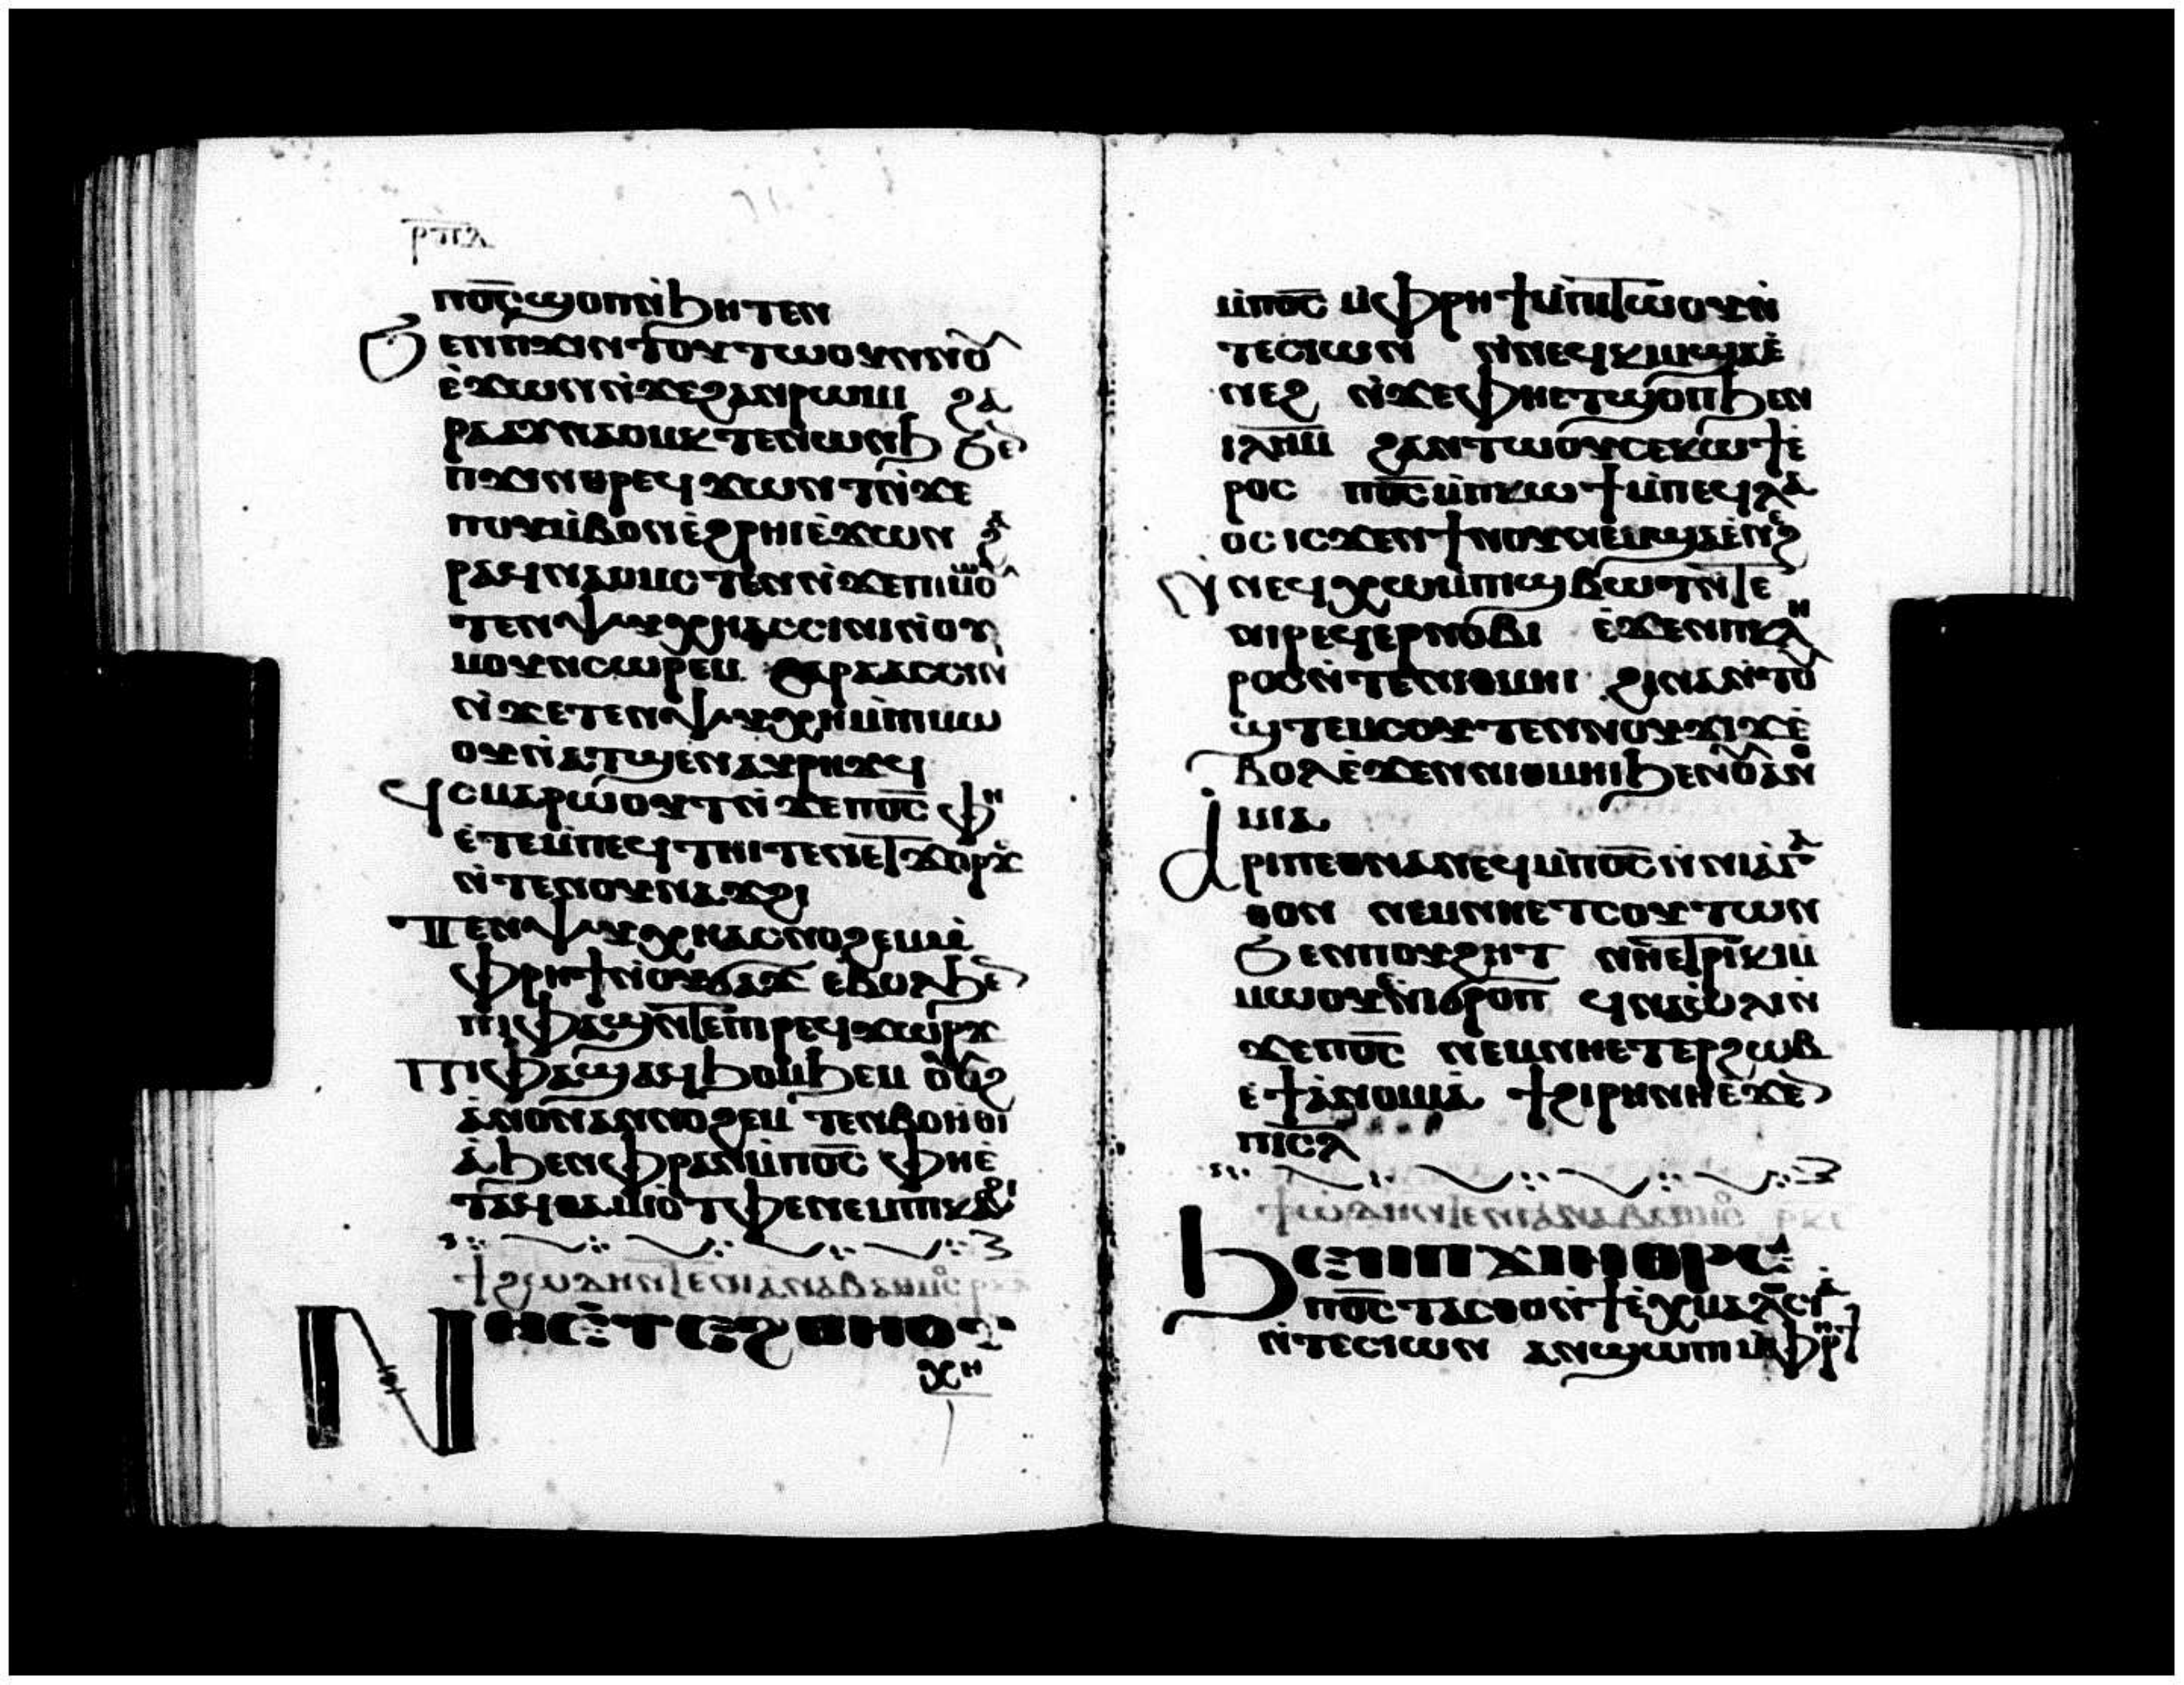 ⲣⲡⲁ
ⲡⲟ̅ⲥ̅ϣⲟⲡⲛ̀ϧⲏⲧⲉⲛ
ϧⲉⲛⲡϫⲓⲛⲧⲟⲩⲧⲱⲟⲩⲛⲛⲟ̂
ⲉ̀ϫⲱⲛⲛ̀ϫⲉϩⲁⲛⲣⲱⲙⲓ ϩⲁ
ⲣⲁⲁⲩⲛⲁⲟⲙⲕⲧⲉⲛⲱⲛϧ ϧⲉ
ⲡϫⲓⲛⲑⲣⲉϥϫⲱⲛⲧⲛ̀ϫⲉ
ⲡⲟⲩⲙ̀ⲃⲟⲛⲉ̀ϩⲣⲏⲓⲉ̀ϫⲱⲛ ϩⲁ
ⲣⲁϥⲛⲁⲟⲙⲥⲧⲉⲛⲛ̀ϫⲉⲡⲓⲙⲱⲟ̂
ⲧⲉⲛⲯⲩⲭⲏⲁⲥⲥⲓⲛⲓⲛ̀ⲟⲩ
ⲙⲟⲩⲛⲥⲱⲣⲉⲙ ϩⲁⲣⲁⲁⲥⲥⲓⲛ
ⲛ̀ϫⲉⲧⲉⲛⲯⲩⲭⲏⲙ̀ⲡⲓⲙⲱ
ⲟⲩⲛ̀ⲁⲧϣⲉⲛⲁⲩⲣⲏϫϥ
ϥⲥⲙⲁⲣⲱⲟⲩⲧⲛ̀ϫⲉⲡⲟ̅ⲥ̅ ⲫⲏ
ⲉ̀ⲧⲉⲙ̀ⲡⲉϥⲧⲏⲓⲧⲉⲛⲉⲧϫⲟⲣϫ
ⲛ̀ⲧⲉⲛⲟⲩⲛⲁϫϩⲓ
ⲧⲉⲛⲯⲩⲭⲏⲁⲥⲛⲟϩⲉⲙⲙ̀
ⲫⲣⲏϯⲛ̀ⲟⲩϭⲁϫ ⲉⲃⲟⲗϧⲉ
ⲡⲓⲫⲁϣⲛⲧⲉⲡⲓⲣⲉϥϫⲱⲣϫ
ⲡⲓⲫⲁϣⲁϥϧⲟⲙϧⲉⲙ ⲟ̂ϩ
ⲁⲛⲟⲛⲁⲛⲛⲟϩⲉⲙ ⲧⲉⲛⲃⲟⲏⲑⲓ
ⲁ̀ϧⲉⲛⲫⲣⲁⲛⲙ̀ⲡⲟ̅ⲥ̅ ⲫⲏⲉ̀
ⲧⲁϥⲑⲁⲙⲓⲟ̀ⲧⲫⲉⲛⲉⲙⲡⲕⲁϩⲓ
ⲛⲏⲉ̀ⲧⲉϩⲑⲏⲟⲩ
ⲭⲏ
ⲙ̀ⲡⲟ̅ⲥ̅ ⲙ̀ⲫⲣⲏϯⲙ̀ⲡⲓⲧⲱⲟⲩⲛ̀
ⲧⲉⲥⲓⲱⲛ ⲛ̀ⲛⲉϥⲕⲓⲙϣⲁⲉ̀
ⲛⲉϩ ⲛ̀ϫⲉⲫⲏⲉⲧϣⲟⲡϧⲉⲛ
ⲓⲗⲏⲙ ϩⲁⲛⲧⲱⲟⲩⲥⲉⲕⲱϯⲉ̀
ⲣⲟⲥ ⲡⲟ̅ⲥ̅ⲙ̀ⲡⲕⲱϯⲙ̀ⲡⲉϥⲗⲁ
ⲟⲥ ⲓⲥϫⲉⲛϯⲛⲟⲩⲛⲉⲙϣⲁⲉ̀ⲛⲉϩ
ⲛ̀ⲛⲉϥⲭⲱⲙ̀ⲡⲓϣⲃⲱⲧⲛ̀ⲧⲉ
ⲛⲓⲣⲉϥⲉⲣⲛⲟⲃⲓ ⲉ̀ϫⲉⲛⲡⲕⲗⲏ
ⲣⲟⲥⲛ̀ⲧⲉⲛⲓⲑⲙⲏⲓ ϩⲓⲛⲁⲛ̀ⲧⲟⲩ
ϣⲧⲉⲙⲥⲟⲩⲧⲉⲛⲛⲟⲩϫⲓϫⲉ̀
ⲃⲟⲗⲉ̀ϫⲉⲛⲛⲓⲑⲙⲏⲓϧⲉⲛⲟ̂ⲁⲛⲟ
ⲙⲓⲁ
ⲁⲣⲓⲡⲉⲑⲛⲁⲛⲉϥⲙ̀ⲡⲟ̅ⲥ̅ⲛ̀ⲛⲓⲁⲅⲁ
ⲑⲟⲛ ⲛⲉⲙⲛⲏⲉⲧⲥⲟⲩⲧⲱⲛ
ϧⲉⲛⲡⲟⲩϩⲏⲧ ⲛⲏⲉⲧⲣⲓⲕⲓⲙ̀
ⲙⲱⲟⲩⲛ̀ⲓϭⲣⲟⲡ ϥⲛⲁⲟ̀ⲗⲓⲛ̀
ϫⲉⲡⲟ̅ⲥ̅ ⲛⲉⲙⲛⲏⲉⲧⲉⲣϩⲱⲃ
ⲉ̀ϯⲁ̀ⲛⲟⲙⲓⲁ̀ ϯϩⲓⲣⲏⲛⲏⲉ̀ϫⲉ
ⲡⲓⲥⲗ
ϧⲉⲛⲡϫⲓⲛⲑⲣⲉ
ⲡⲟ̅ⲥ̅ⲧⲁⲥⲑⲟⲛ̀ϯⲉ̀ⲭⲙⲁⲗⲱⲥⲓⲁ
ⲛ̀ⲧⲉⲥⲓⲱⲛ ⲁⲛϣⲱⲡⲓⲙ̀ⲫⲣⲏϯ